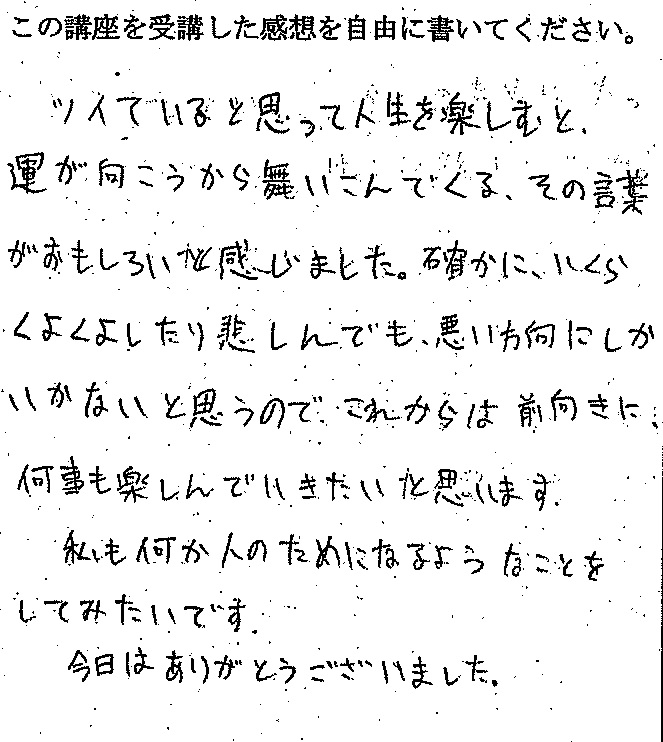 この講座を受講した感想を自由に書いてください。
ツイていると思って人生を楽しむと、
運が向こうから舞いこんでくる、その言葉
がおもしろいと感じました。確かに、いくら
くよくよしたり悲しんでも、悪い方向にしか
いかないと思うので、これからは前向きに、
何事も楽しんでいきたいと思います。
私も何か人のためになるようなことを
してみたいです。
今日はありがとうございました。